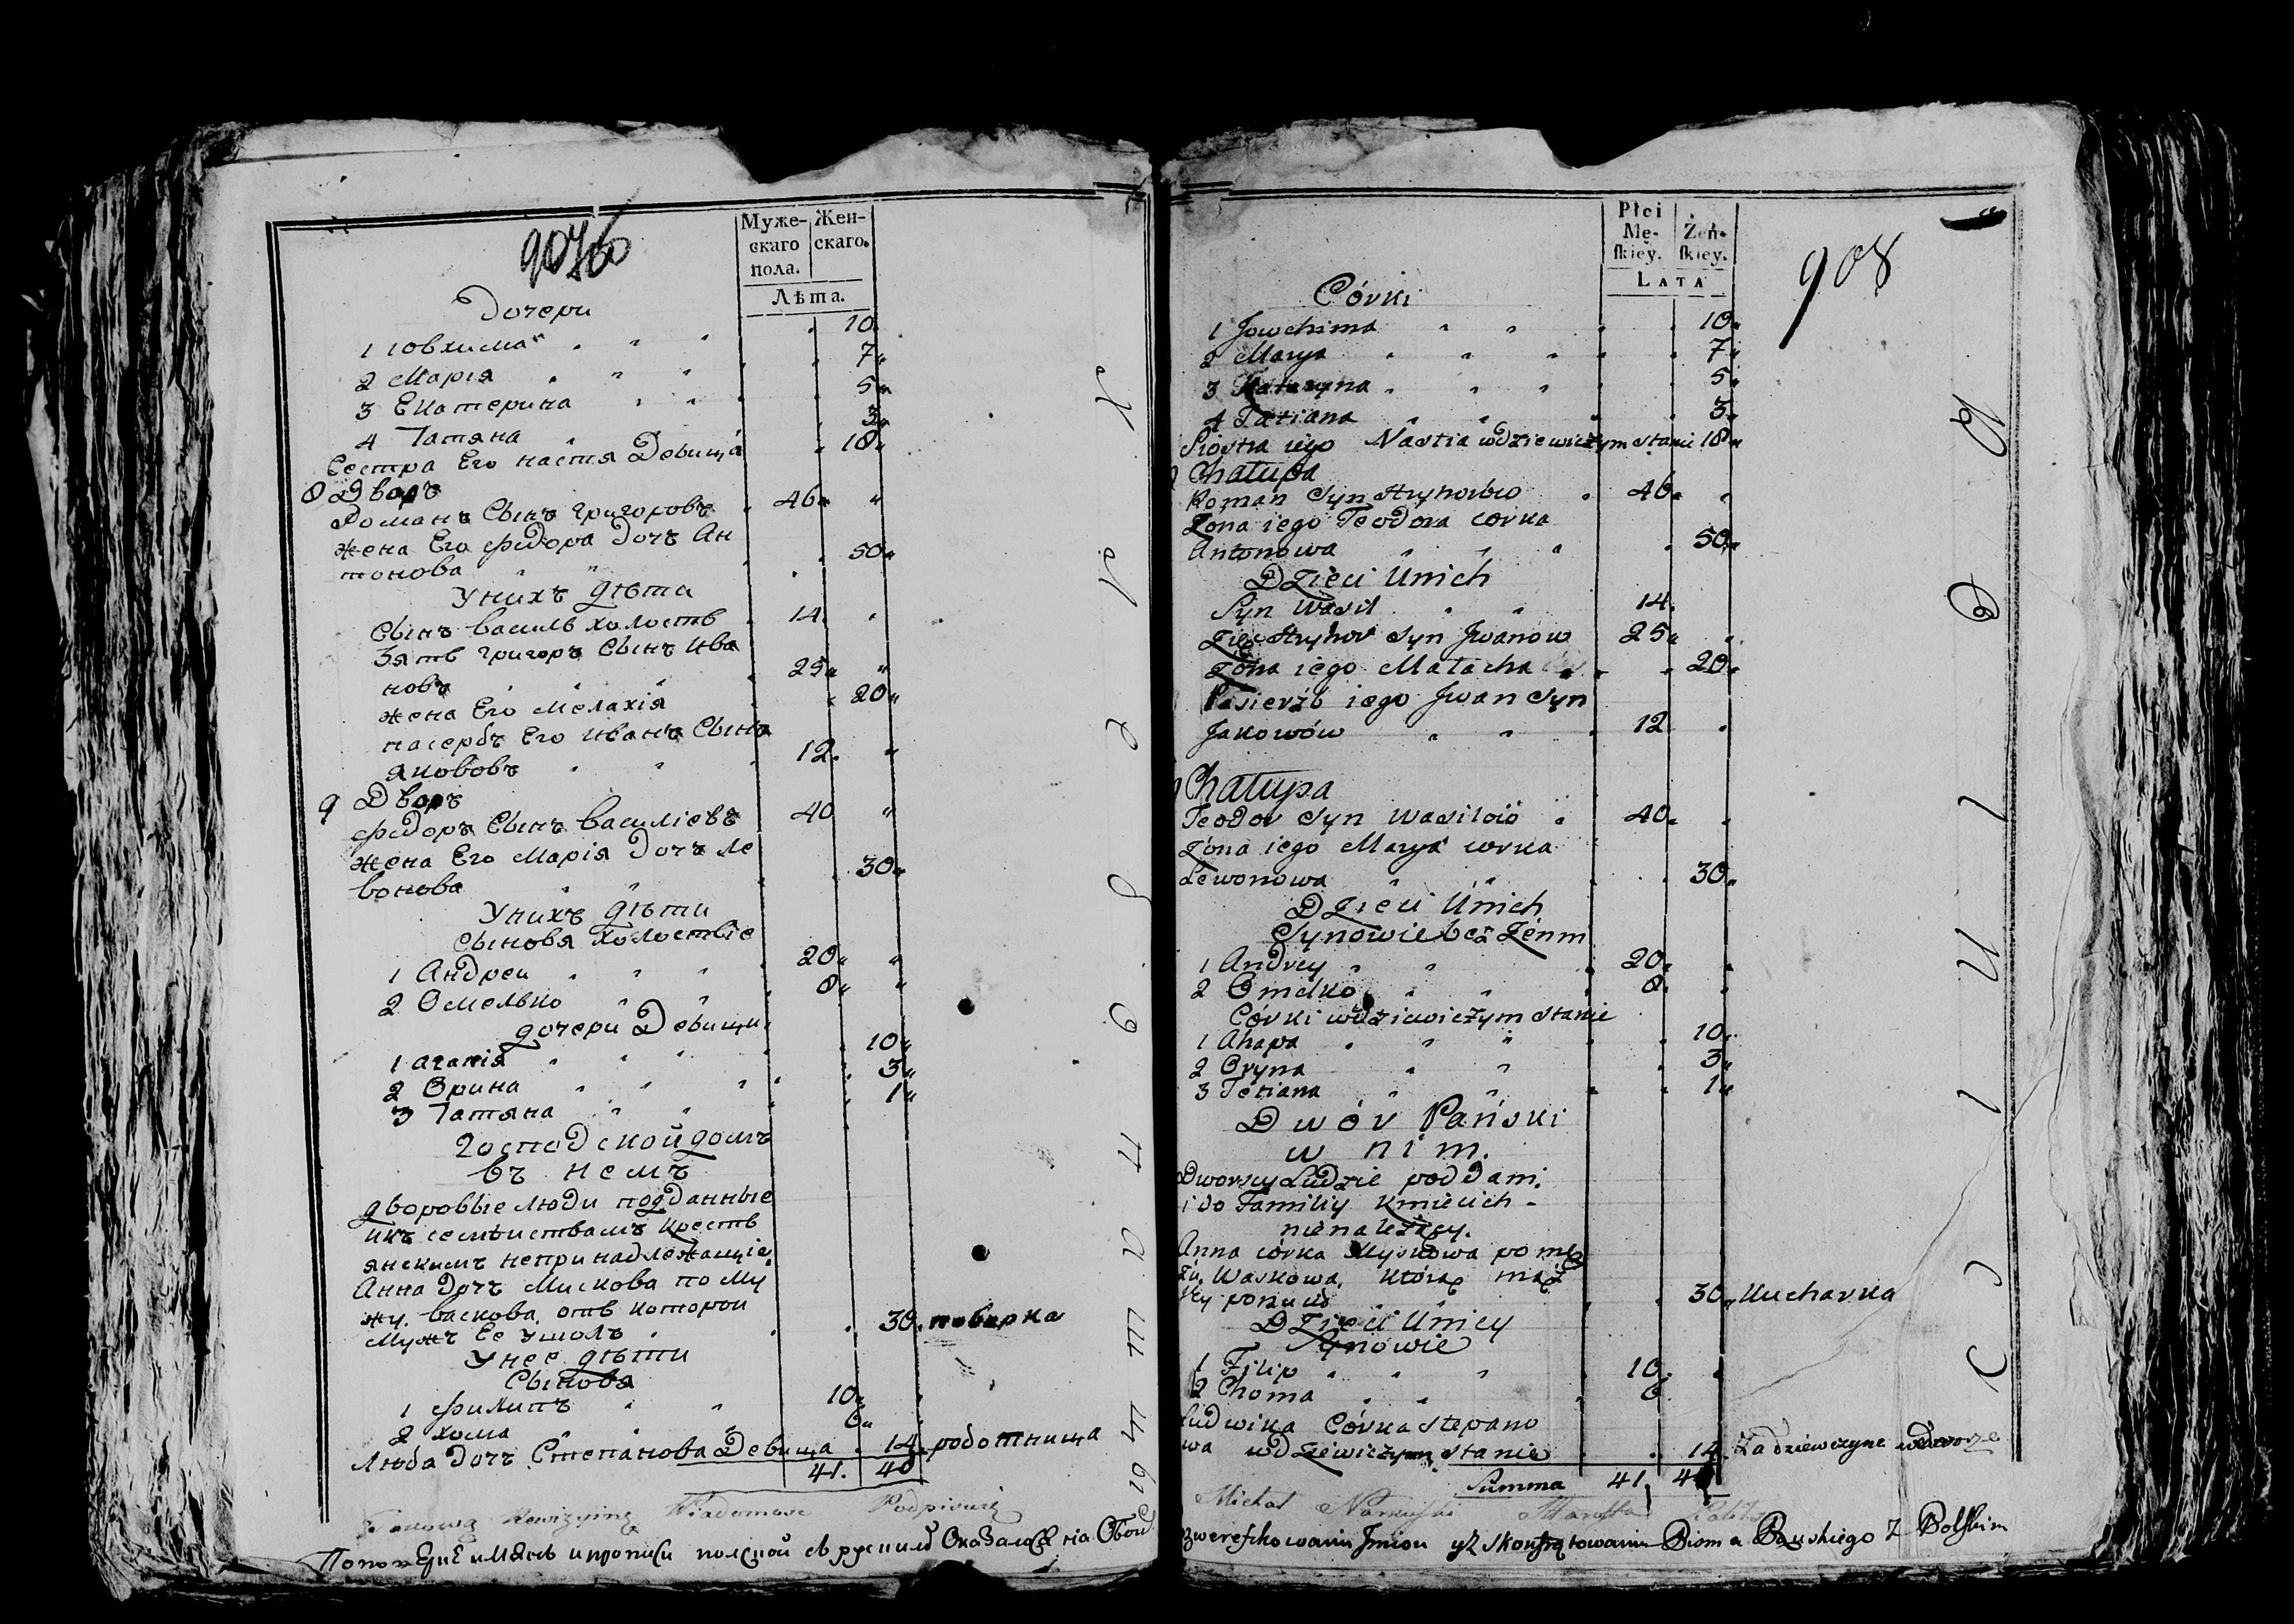 Муже-
скаго
пола.
Жен-
скаго.
Лѣта.
Дочери
1 Ювхима 10
2 Марія 7
3 Екатерина 5
4 Татяна 3
Сестра Его настя Девища 18
8 Дворъ
Романъ Сынъ григоровъ 46
жена Его федора Дочъ Ан
тонова 50
Унихъ дѣти
Сынъ василь холостъ 14
Зять григоръ Сынъ Ива
новъ 25
жена Его мелахія 20
пасербъ Его иванъ Сынъ
яковъвъ 12
9 Дворъ
федоръ Сынъ василіевъ 40
жена Его Марія Дочъ ле
вонова 30
Унихъ дѣти
Сыновя холостіе
1 Андреи 20
2 Омелько 8
дочери Девищи
1 агапія 10
2 Орина 3
3 Татяна 1
Господской домъ
въ немъ
дворовые люди подданные
икъ семѣиствамъ кресть
янскимъ непринадлежащіе
Анна Дочъ Мискова по му
жу васкова, отъ которои
мужъ Ее ушолъ 30 поварка
Унее дѣти
Сыновя
1 филипъ 10
2 хома 6
Люба Дочъ Степанова Девища 14 роботница
41. 40
Takową Rewizyiną Wiadomość Podpisuię
908
Płci
Mę-
skiey.
Żeń-
skiey.
LATA
Córki
1 Jowchima 10
2 Marya 7
3 Kataryna 5
4 Tatiana 3
Siostra iego Nastia wdziewiczym stanie 18
Chatupa
Roman Syn Hryhorów 46
Zona iego Teodora corka
Antonowa 50
Dzieci Unich
Syn Wasil 14
Zięć Hryhor Syn Jwanow 25
Zona iego Małacha 20
Pasierżb iego Jwan Syn
Jakowów 12
Chatupa
Teodor Syn Wasilow 40
Zona iego Marya corka
Lewonowa 30
Dzieci Unich
Synowie bez Żenni
1 Andrey 20
2 Omelko 8
Córki wdziewiczym stanie
1 Ahapa 10
2 Oryna 3
3 Tetiana 1
Dwór Pański
w nim.
Dworscy Ludzie poddani
i do Familiy Kmiecich
nienależący.
Anna córka Myskowa po mę
żu, Waskowa, którąą mąż
30 Kucharka
Dzieci Unicy
Synowie
1 Filip 10
2 Choma 6
Ludwika Córka stepano
wa wdziewiczym stanie 14 Za dziewczyne wdworze
Summa 41. 40
Michał